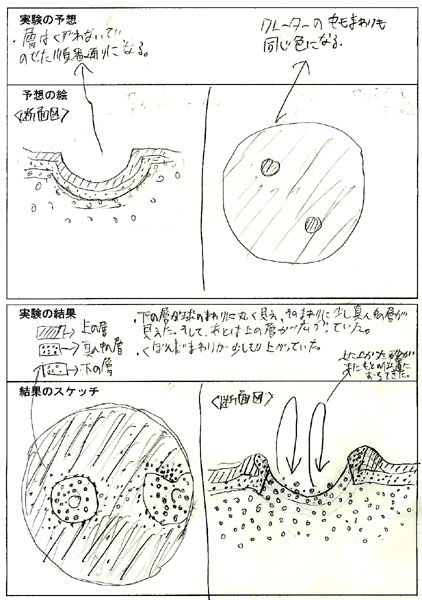 実験の予想
・層はくずれないで
のせた順番通りになる。
クレーターの中もまわりも
同じ色になる。
予想の絵
<断面図>
実験の結果
上の層
真ん中の層
下の層
・下の層が球のまわりに丸く見え、そのまわりに少し真ん中の層が
見えた。そして、あとは上の層が広がっていた。
・くぼんだまわりが少しもり上がっていた。
上に上がった砂が
またもとの位置に
おちてきた。
結果のスケッチ
<断面図>